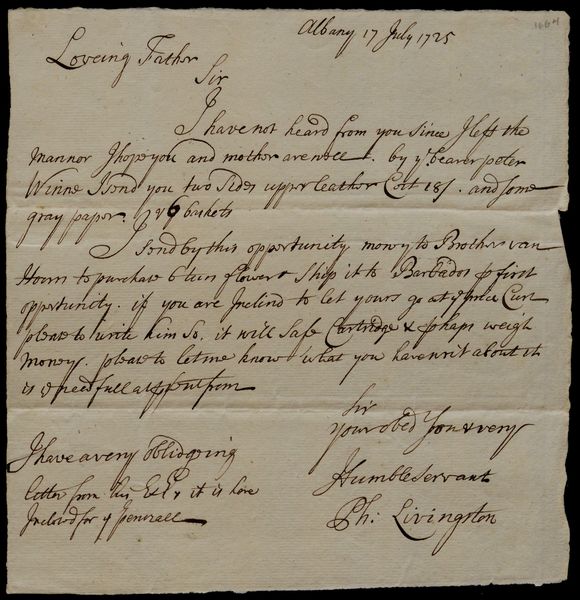 Albany 17 July 1725
Loveing Father
Sir
I have not heard from you since I left the
mannor I hope you and mother are well. by ye bearer peter
Winne I send you two sides upper leather Cost 18/. and some
gray paper. & 6 baskets
I send by this opportunity money to Brother van
Hoorn to purchase 6 tun flower & ship it to Barbados p first
opportunity. if you are Inclind to let yours go at ye price Curt
please to write him so. it will safe Cartridge & phaps weigh
money. please to let me know what you have writ about it
is ye needfull at psent from
Sir
your obed Son & very
Humble Servant
Ph: Livingston
I have a very oblidgeing
letter from his Exly & it is here
Inclosd for yr perusall